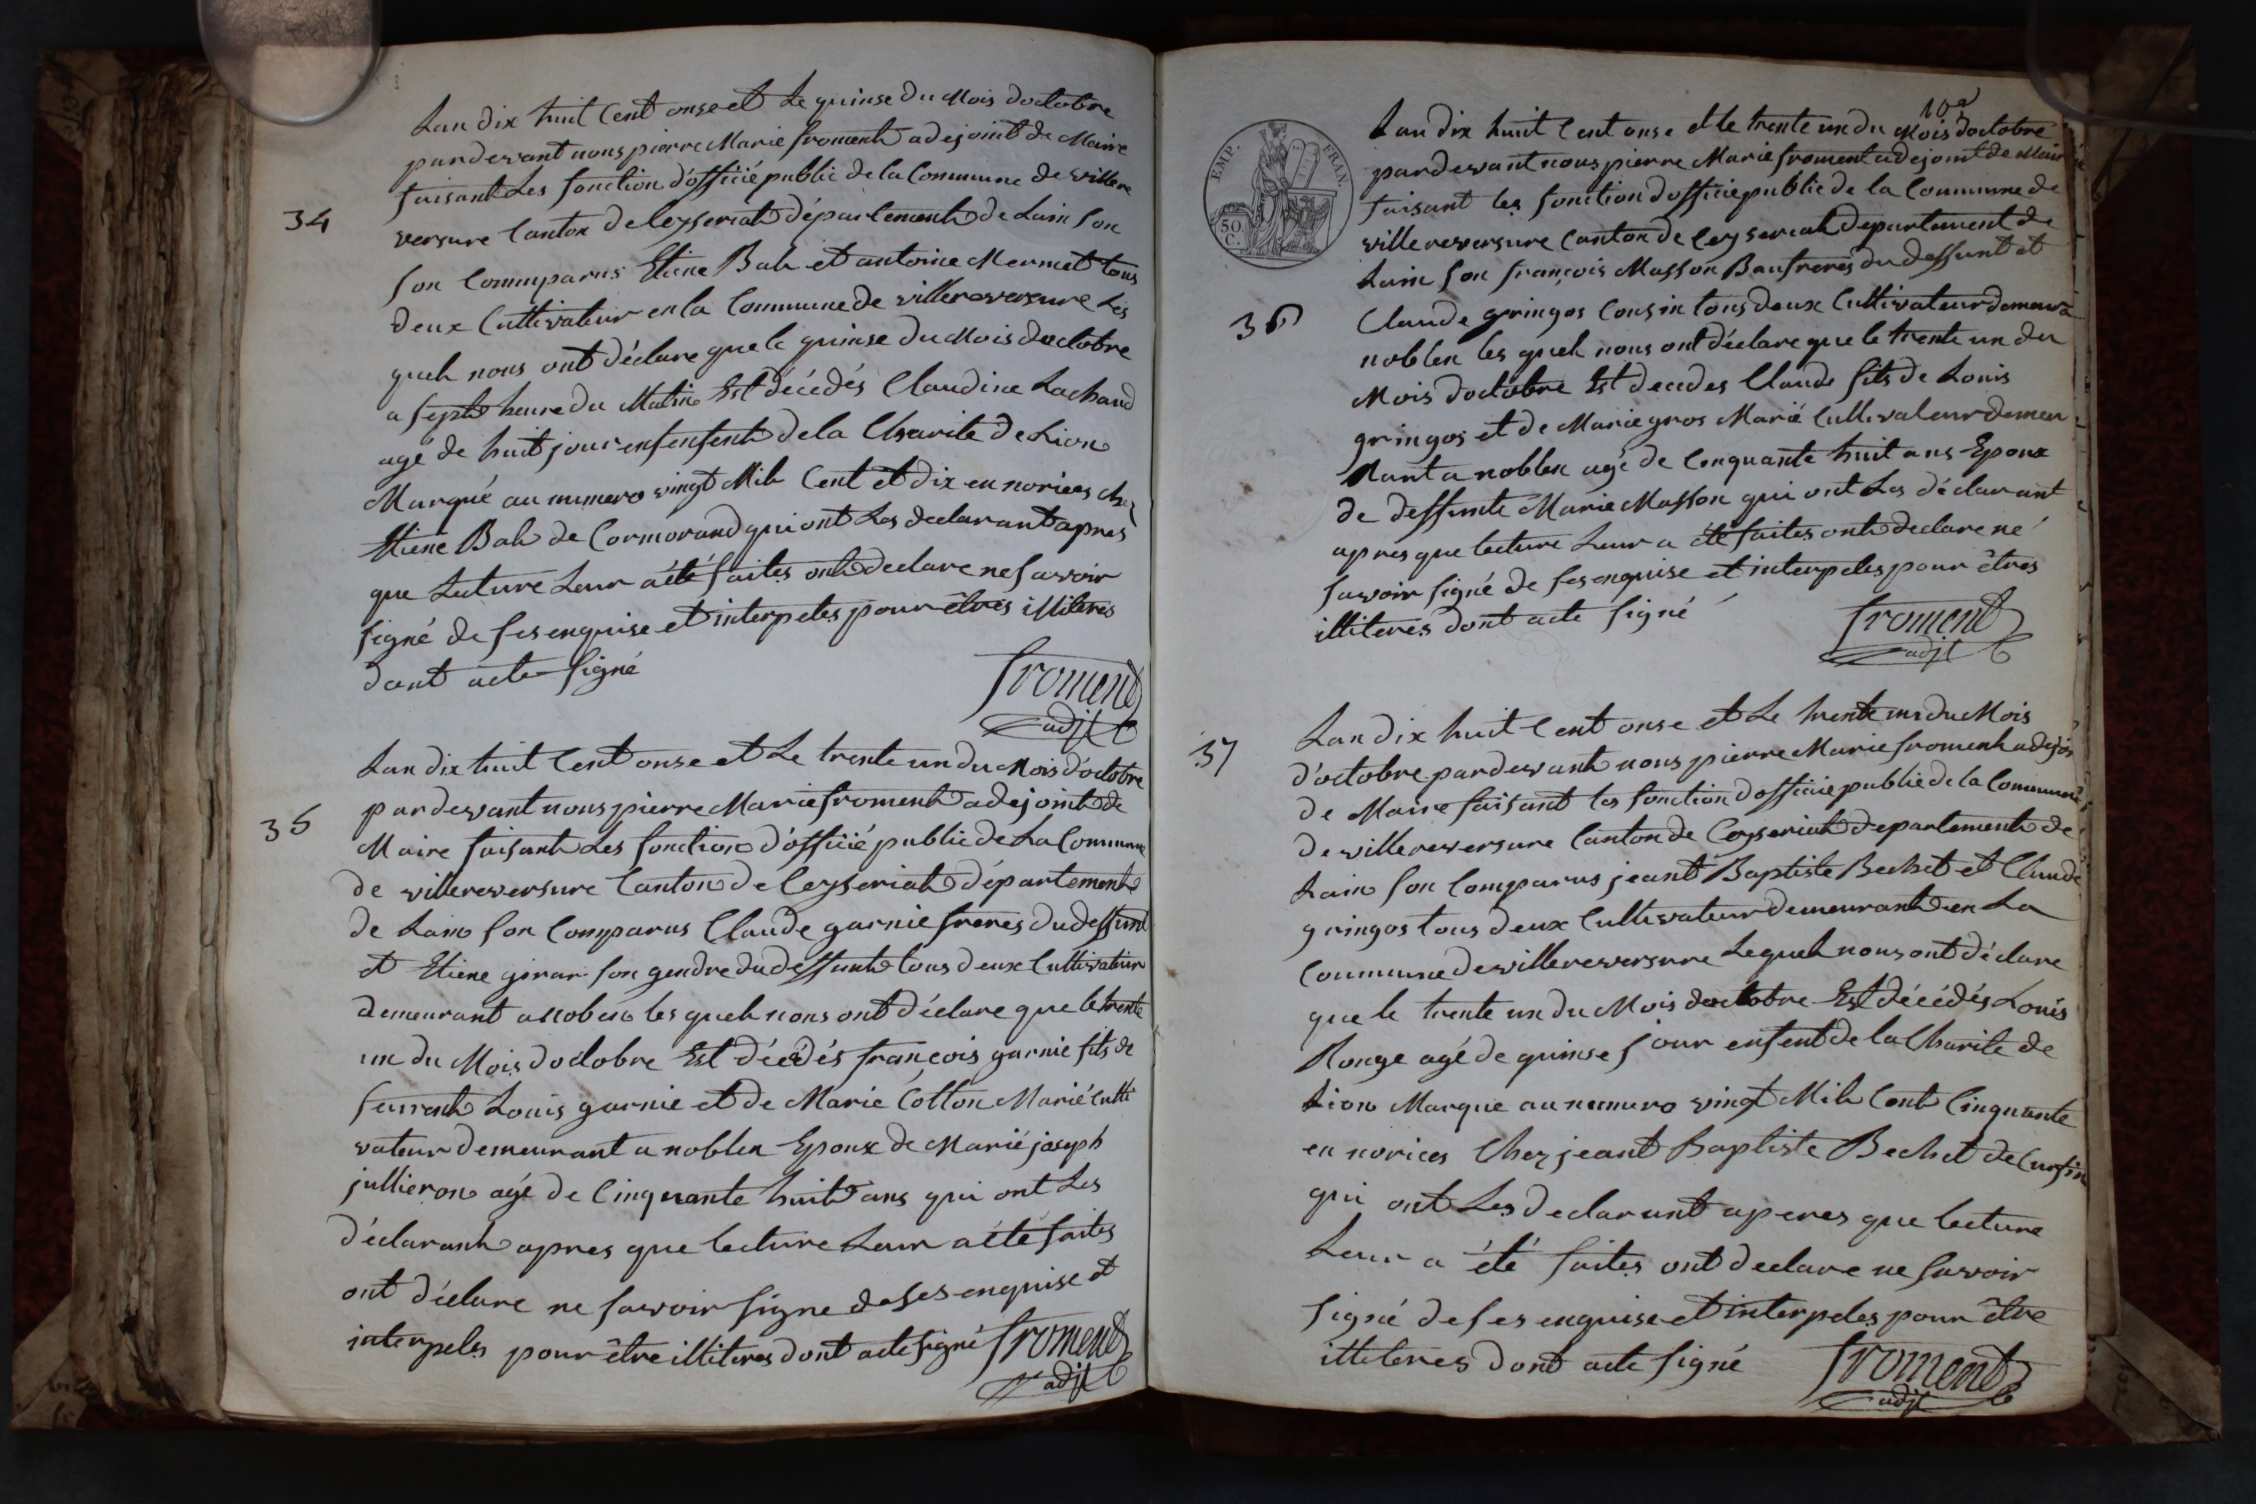 34
Lan dix huit Cent onse et Le quinse du Mois doctobre
pardevant nous pierre Marie froment adejoint de Maire
faisant Les fonction d'officié public de la Commune de villere
versure Canton de Ceyseriat département de Lain Son
Son Commparus Etiene Bah et antoine Mermet tous
deux Cultivateur en la Commune de villereversure Les
quels nous ont déclare que le quinse du Mois doctobre
a sept heure du Matin Est décédés Claudine Lachaud
agé de huit jour enfenfent de la Charite de Lion
Marqué au numero vingt Mile Cent et dix en norices chez
Etiene Bah de Cormorand qui ont Les declarant apres
que Lecture Leur a été faites ont declare ne savoir
signé de ses enquise et interpeles pour êtres illiteres
dont acte Signé
froment
adjt
35
Lan dix huit Cent onse et Le trente un du Mois d'octobre
pardevant nous pierre Marie froment adejoint de
Maire faisant Les fonction d'officié public de La Commune
de villereversure Canton de Ceyseriat département
de Lain Son Comparus Claude garnie freres du deffunt
et Etiene girar son gendre du deffunt tous deux Cultivateur
demeurant a noblen les quels nous ont déclare que le trente
un du Mois doctobre Est décédés françois garnie fils de
Louis garnie et de Marie Cotton Marié Culti
vateur demeurant a noblen Epoux de Marie joseph
jullieron agé de Cinquante huit ans qui ont Les
déclarant apres que lecture Leur a été faites
ont déclare ne savoir signe de ses enquise et
interpeles pour être illiteres dont acte signé froment
adjt
EMP. FRAN.
50 C.
36
Lan dix huit Cent onse et le trente un du Mois doctobre
pardevant nous pierre Marie froment adejoint de Maire
faisant les fonction d'officié public de la Commune de
villereversure Canton de Ceyseriat département de
Lain Son françois Masson Baufreres du deffunt et
Claude gringos Cousin tous deux Cultivateur demeura
noblen les quels nous ont déclare que le trente un du
Mois doctobre Est decedes Claude fils de Louis
gringos et de Marie gros Marié Cultivateur demeu
Rant a noblen agé de Cinquante huit ans Epoux
de deffunte Marie Masson qui ont Les déclarant
apres que lecture Leur a été faites ont declare né
savoir signé de ses enquise et interpeles pour êtres
illiteres dont acte signé
froment
adjt
37
Lan dix huit Cent onse et Le trente un du Mois
d'octobre pardevant nous pierre Marie froment adejoi
de Maire faisant les fonction d'officié public de la Commune
de villereversure Canton de Ceyseriat département de
Lain Son Comparus jeant Baptiste Bechet et Claude
gringos tous deux Cultivateur demeurant en La
Commune de villereversure Lequels nous ont déclare
que le trente un du Mois doctobre Est décédés Louis
Rouge agé de quinse jour enfent de la Charite de
Lion Marque au numero vingt Mile Cent Cinquante
en norices Chez jeant Baptiste Bechet de
qui ont Les declarant aperes que lecture
Leur a été faites ont declare ne savoir
signé de ses enquise et interpeles pour être
illiteres dont acte signé
froment
adjt